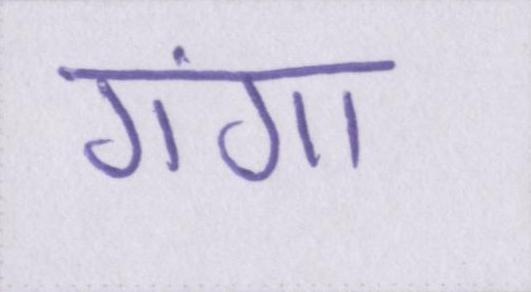 गंगा